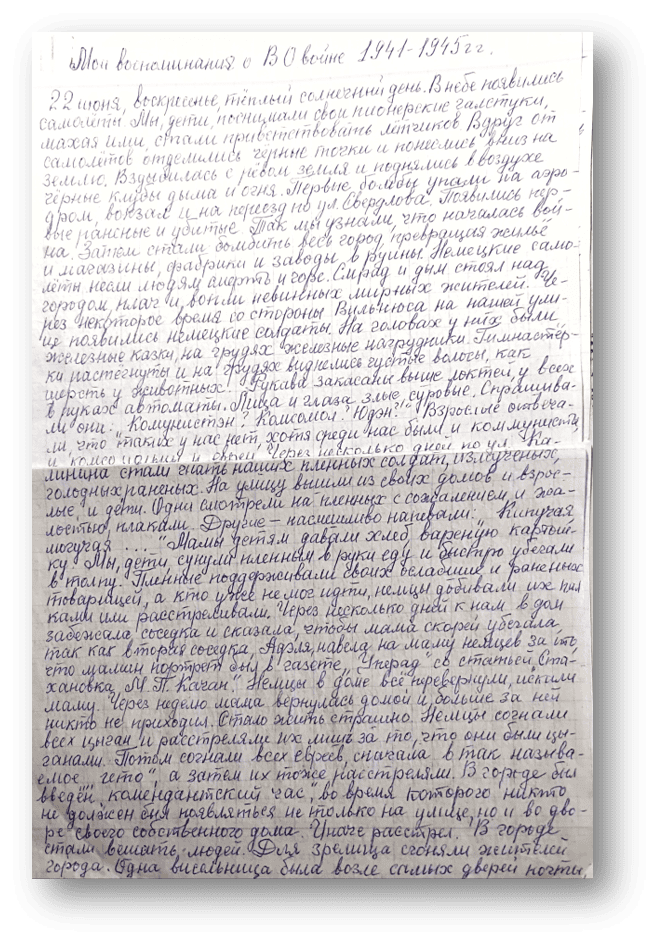 Мои воспоминания о ВО войне 1941-1945гг.
22 июня, воскресенье, тёплый солнечный день. В небе появились
самолёты. Мы, дети, поснимали свои пионерские галстуки,
махая ими, стали приветствовать лётчиков. Вдруг от
самолётов отделились чёрные точки и понеслись вниз на
землю. Вздыбилась с рёвом земля и поднялись в воздухе
чёрные клубы дыма и огня. Первые бомбы упали на аэро-
дром, вокзал и на переезд по ул. Свердлова. Появились пер-
вые раненые и убитые. Так мы узнали, что началась вой-
на. Затем стали бомбить весь город, превращая жильё
и магазины, фабрики и заводы в руины. Немецкие само-
лёты несли людям смерть и горе. Смрад и дым стоял над
городом, плач и вопли невинных мирных жителей. Че-
рез некоторое время со стороны Вильнюса на нашей ули-
це появились немецкие солдаты. На головах у них были
железные каски, на грудях железные нагрудники. Гимнастёр-
ки растёгнуты и на грудях виднелись густые волосы, как
шерсть у животных. Рукава закасаны выше локтей, у всех
в руках автоматы. Лица и глаза злые, суровые. Спрашива-
ли они: "Комунистэн? Комсомол? Юдэн?" Взрослые отвеча-
ли, что "таких у нас нет, хотя среди нас были и коммунисты
и комсомольцы и евреи. Через несколько дней по ул. Ка-
линина стали гнать наших пленных солдат, измученых,
голодных раненых. На улицу вышли из своих домов и взрос-
лые и дети. Одни смотрели на пленных с сожалением и жа-
лостью, плакали. Другие – насмешливо напевали: "Кипучая
могучая ...." Мамы детям давали хлеб варёную картош-
ку. Мы, дети сунули пленным в руки еду и быстро убегали
в толпу. Пленные поддерживали своих ослабших и раненых
товарищей, а кто уже не мог идти, немцы добивали их пал
ками или расстреливали. Через несколько дней к нам в дом
забежала соседка и сказала, чтобы мама скорей убегала
так как вторая соседка, Адэля, навела на маму немцев за то
что мамин портрет был в газете "Уперад" со статьёй "Ста-
хановка М.П. Каган." Немцы в доме всё перевернули, искали
маму. Через неделю мама вернулась домой и больше за ней
никто не приходил. Стало жить страшно. Немцы согнали
всех цыган и расстреляли их лишь за то, что они были цы-
ганами. Потом согнали всех евреев, сначала в так называ-
емое "гетто", а затем их тоже расстреляли. В городе был
введён "комендантский час", во время которого никто
не должен был появляться не только на улице, но и во дво-
ре своего собственного дома. Иначе расстрел. В городе
стали вешать людей. Для зрелища сгоняли жителей
города. Одна виселница была возле самых дверей почты,